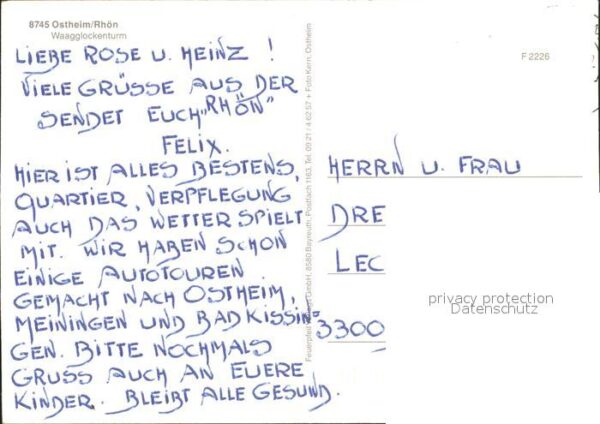 8745 Ostheim/Rhön
Waagglockenturm
LIEBE ROSE U. HEINZ !
VIELE GRÜSSE AUS DER
SENDET EUCH „RHÖN"
FELIX.
HIER IST ALLES BESTENS,
QUARTIER, VERPFLEGUNG
AUCH DAS WETTER SPIELT
MIT. WIR HABEN SCHON
EINIGE AUTOTOUREN
GEMACHT NACH OSTHEIM,
MEININGEN UND BAD KISSIN-
GEN. BITTE NOCHMALS
GRUSS AUCH AN EUERE
KINDER. BLEIBT ALLE GESUND.
GmbH, 8580 Bayreuth, Postfach 1163, Tel. 09 21 / 4 62 57 • Foto Kern, Ostheim
F 2226
HERRN U. FRAU
DRE
LEC
3300
privacy protection
Datenschutz